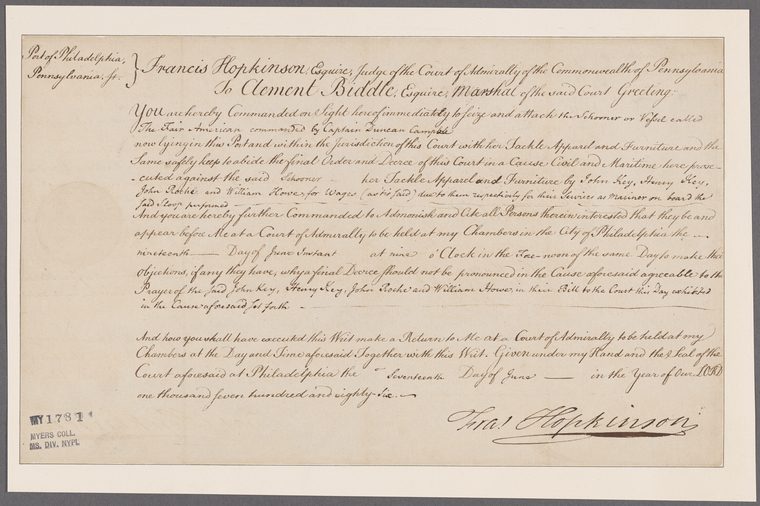 Port of Philadelphia,
Pennsylvania. ss.
Francis Hopkinson, Esquire, Judge of the Court of Admiralty of the Commonwealth of Pennsylvania
To Clement Biddle, Esquire, Marshal of the said Court Greeting:
YOU are hereby Commanded on Sight hereof immediately to seize and attach the Schooner or Vessel called
The Fair American commanded by Captain Duncan Campbell
now lying in this Port and within the jurisdiction of this Court with her Tackle Apparel and Furniture and the
Same safely keep to abide the final Order and Decree of this Court in a Cause Civil and Maritime here prose-
-cuted against the said Schooner her Tackle Apparel and Furniture by John Key, Henry Key,
John Roche and William Howe for Wages (as tis said) due to them respectively for their Services as Mariners on board the
said Sloop performed
And you are hereby further Commanded to Admonish and Cite all Persons therein interested that they be and
appear before Me at a Court of Admiralty to be held at my Chambers in the City of Philadelphia the
nineteenth Day of June Instant at nine o'Clock in the Fore-noon of the same Day to make their
objections, if any they have, why a final Decree should not be pronounced in the Cause aforesaid agreeable to the
Prayer of the said John Key, Henry Key, John Roche and William Howe in their Bill to the Court this Day exhibited
in the Cause aforesaid set forth
And how you shall have executed this Writ make a Return to Me at a Court of Admiralty to be held at my
Chambers at the Day and Time aforesaid Together with this Writ. Given under my Hand and the Seal of the
Court aforesaid at Philadelphia the Seventeenth Day of June in the Year of Our LORD
one thousand seven hundred and eighty-six.
Fras. Hopkinson
MY 1781
MYERS COLL.
MS. DIV. NYPL